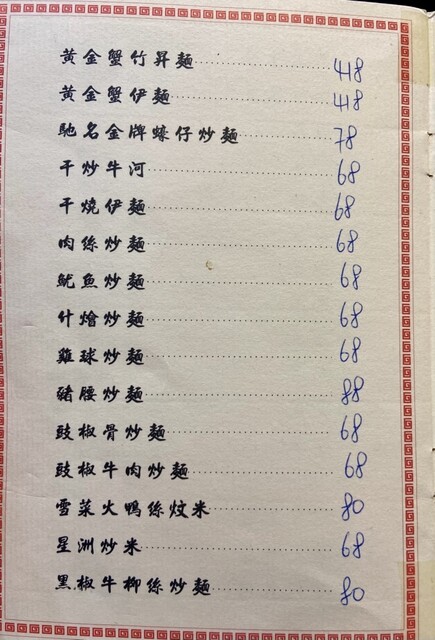 黃金蟹竹昇麵 418
黃金蟹伊麵 418
馳名金牌蠔仔炒麵 78
干炒牛河 68
干燒伊麵 68
肉絲炒麵 68
魷魚炒麵 68
什燴炒麵 68
雞球炒麵 68
豬腰炒麵 88
豉椒骨炒麵 68
豉椒牛肉炒麵 68
雪菜火鴨絲炆米 80
星洲炒米 68
黑椒牛柳絲炒麵 80